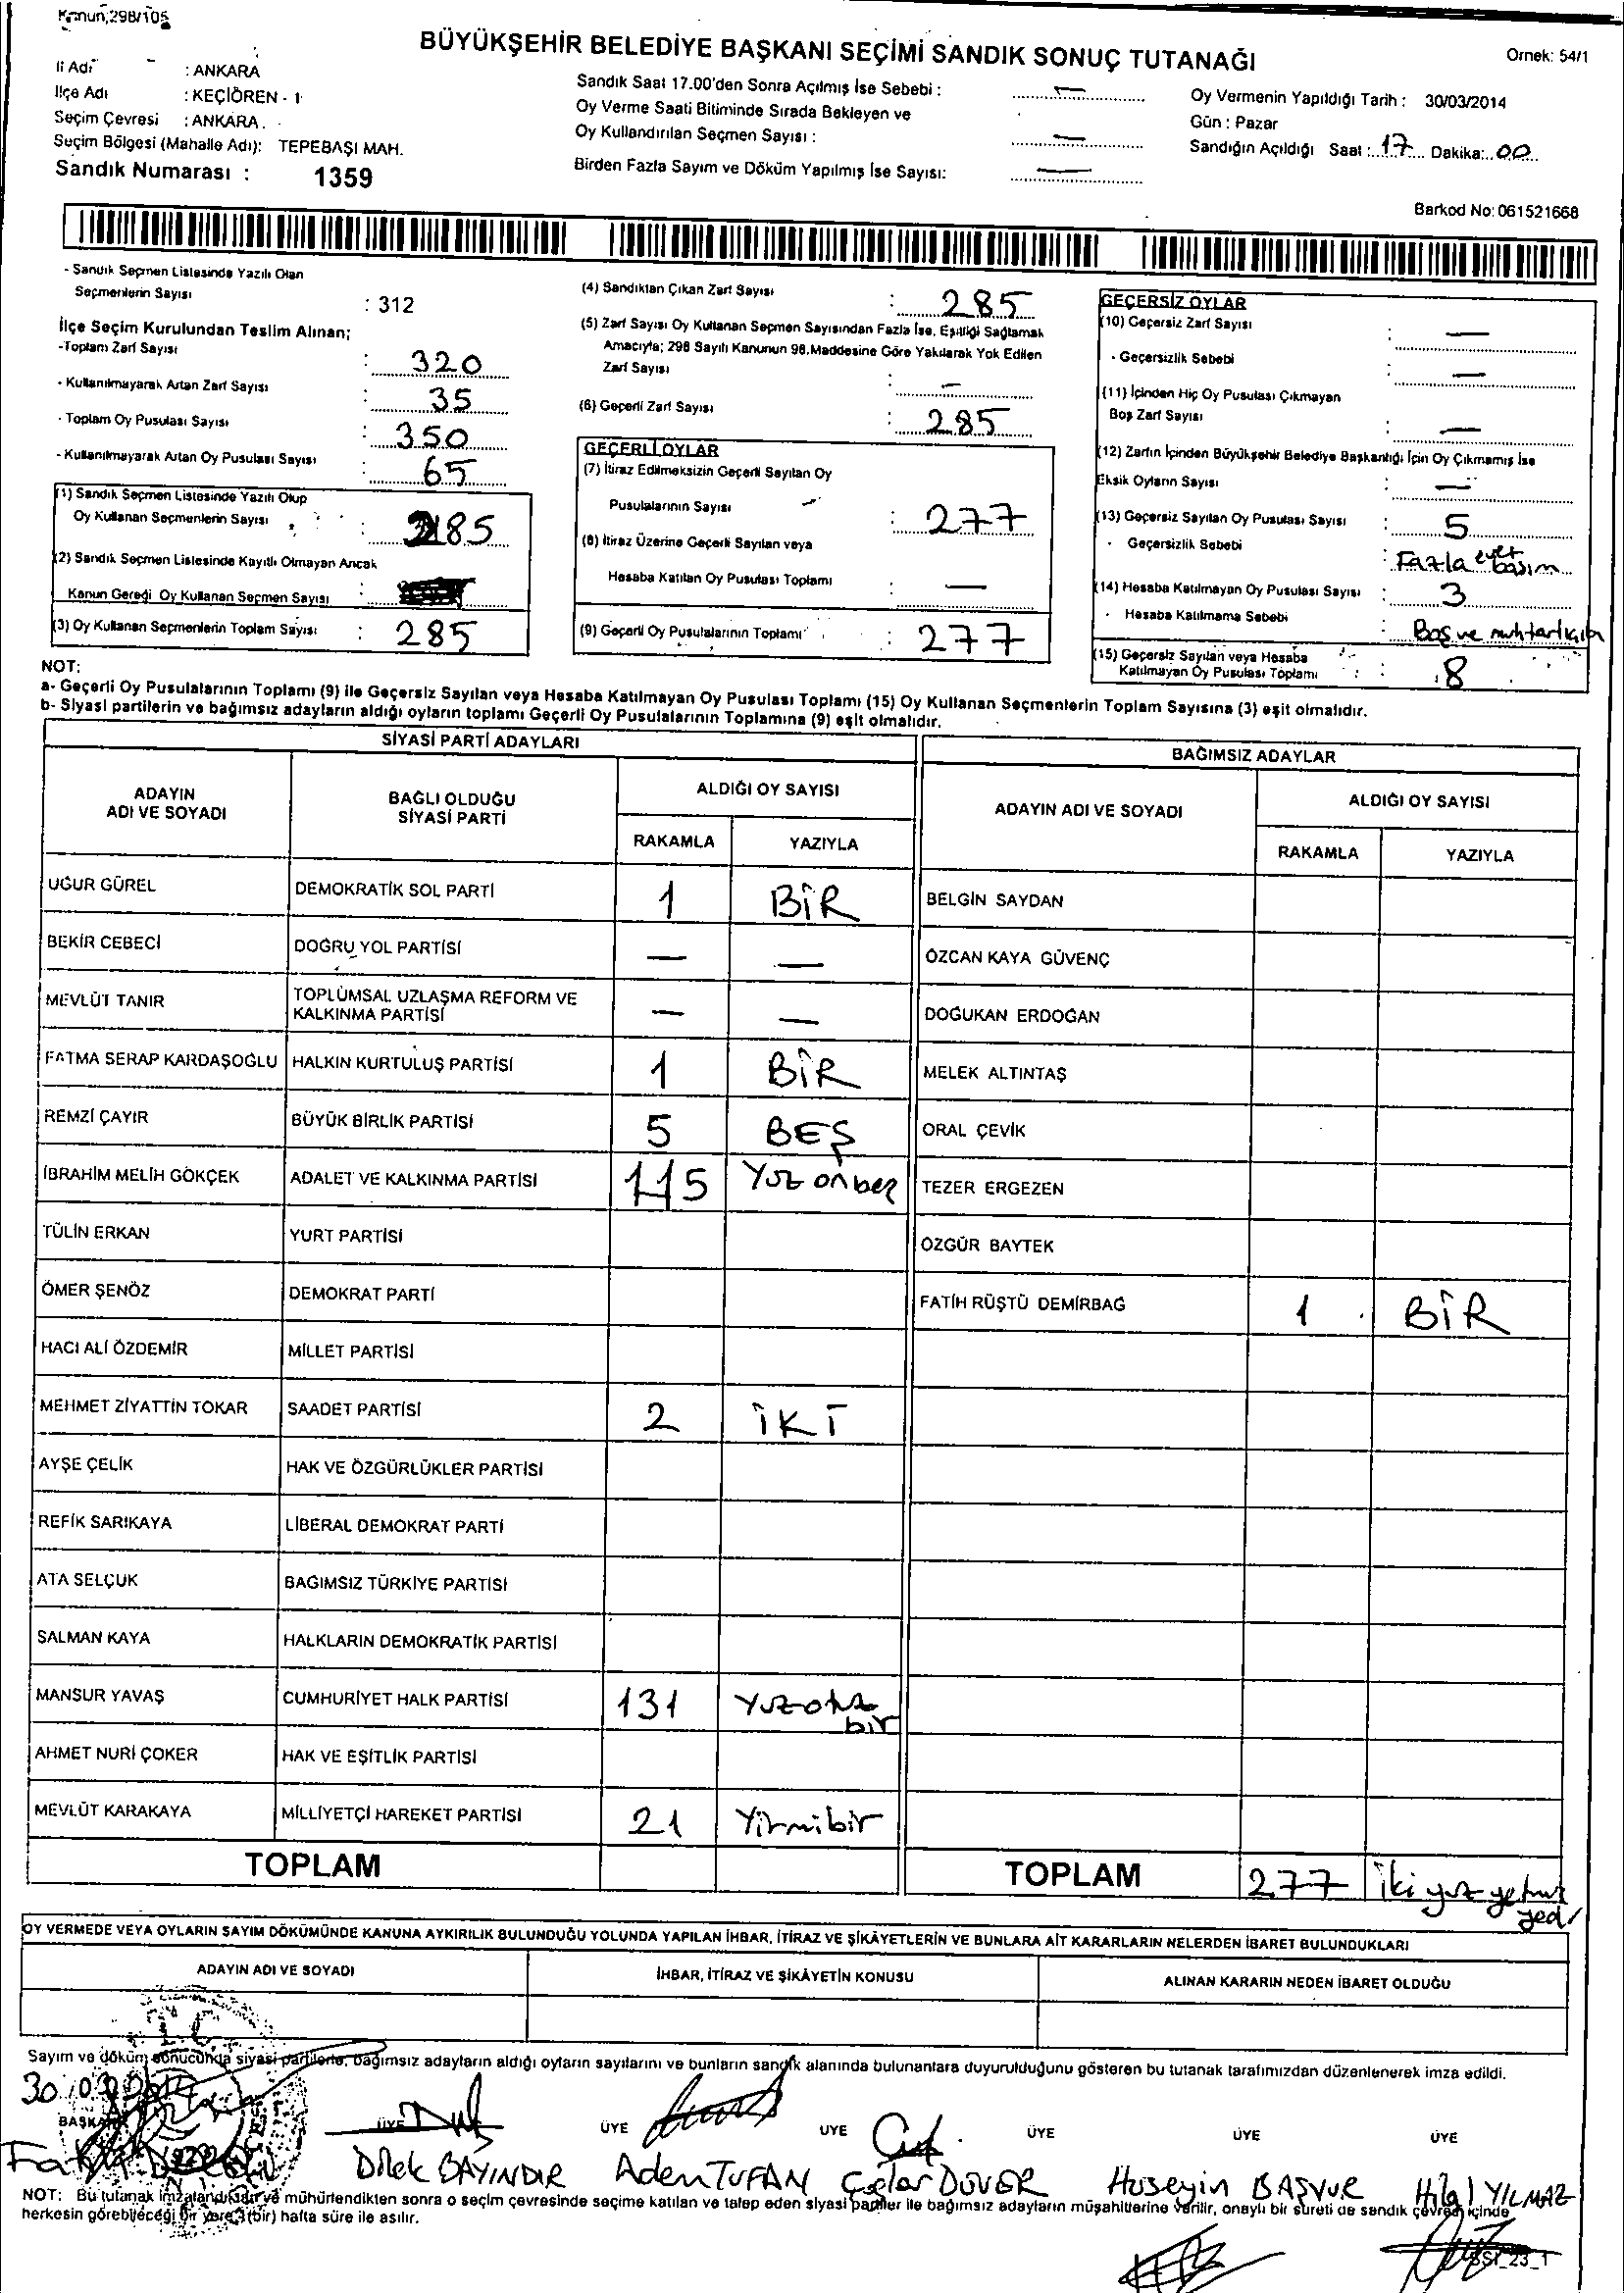 Kanun;298/105
BÜYÜKŞEHİR BELEDİYE BAŞKANI SEÇİMİ SANDIK SONUÇ TUTANAĞI
Ornek: 54/1
İl Adı : ANKARA
İlçe Adı : KEÇİÖREN - 1
Seçim Çevresi : ANKARA
Seçim Bölgesi (Mahalle Adı): TEPEBAŞI MAH.
Sandık Numarası : 1359
Sandık Saat 17.00'den Sonra Açılmış İse Sebebi : —
Oy Verme Saati Bitiminde Sırada Bekleyen ve
Oy Kullandırılan Seçmen Sayısı : —
Birden Fazla Sayım ve Döküm Yapılmış İse Sayısı: —
Oy Vermenin Yapıldığı Tarih : 30/03/2014
Gün : Pazar
Sandığın Açıldığı Saat : 17 Dakika: 00
Barkod No: 061521668
- Sandık Seçmen Listesinde Yazılı Olan
Seçmenlerin Sayısı : 312
İlçe Seçim Kurulundan Teslim Alınan;
-Toplam Zarf Sayısı : 320
- Kullanılmayarak Artan Zarf Sayısı : 35
- Toplam Oy Pusulası Sayısı : 350
- Kullanılmayarak Artan Oy Pusulası Sayısı : 65
(1) Sandık Seçmen Listesinde Yazılı Olup
Oy Kullanan Seçmenlerin Sayısı : 285
(2) Sandık Seçmen Listesinde Kayıtlı Olmayan Ancak
Kanun Gereği Oy Kullanan Seçmen Sayısı :
(3) Oy Kullanan Seçmenlerin Toplam Sayısı : 285
(4) Sandıktan Çıkan Zarf Sayısı : 285
(5) Zarf Sayısı Oy Kullanan Seçmen Sayısından Fazla İse, Eşitliği Sağlamak
Amacıyla; 298 Sayılı Kanunun 98.Maddesine Göre Yakılarak Yok Edilen
Zarf Sayısı : —
(6) Geçerli Zarf Sayısı : 285
GEÇERLİ OYLAR
(7) İtiraz Edilmeksizin Geçerli Sayılan Oy
Pusulalarının Sayısı : 277
(8) İtiraz Üzerine Geçerli Sayılan veya
Hesaba Katılan Oy Pusulası Toplamı : —
(9) Geçerli Oy Pusulalarının Toplamı : 277
GEÇERSİZ OYLAR
(10) Geçersiz Zarf Sayısı : —
- Geçersizlik Sebebi : —
(11) İçinden Hiç Oy Pusulası Çıkmayan
Boş Zarf Sayısı : —
(12) Zarfın İçinden Büyükşehir Belediye Başkanlığı İçin Oy Çıkmamış İse
Eksik Oyların Sayısı : —
(13) Geçersiz Sayılan Oy Pusulası Sayısı : 5
- Geçersizlik Sebebi : Fazla evet basım
(14) Hesaba Katılmayan Oy Pusulası Sayısı : 3
- Hesaba Katılmama Sebebi : Boş ve muhtarlık
(15) Geçersiz Sayılan veya Hesaba
Katılmayan Oy Pusulası Toplamı : 8
NOT:
a- Geçerli Oy Pusulalarının Toplamı (9) ile Geçersiz Sayılan veya Hesaba Katılmayan Oy Pusulası Toplamı (15) Oy Kullanan Seçmenlerin Toplam Sayısına (3) eşit olmalıdır.
b- Siyasi partilerin ve bağımsız adayların aldığı oyların toplamı Geçerli Oy Pusulalarının Toplamına (9) eşit olmalıdır.
SİYASİ PARTİ ADAYLARI
BAĞIMSIZ ADAYLAR
ADAYIN ADI VE SOYADI BAĞLI OLDUĞU SİYASİ PARTİ ALDIĞI OY SAYISI ADAYIN ADI VE SOYADI ALDIĞI OY SAYISI
RAKAMLA YAZIYLA RAKAMLA YAZIYLA
UĞUR GÜREL DEMOKRATİK SOL PARTİ 1 BİR BELGİN SAYDAN
BEKİR CEBECİ DOĞRU YOL PARTİSİ — — ÖZCAN KAYA GÜVENÇ
MEVLÜT TANIR TOPLUMSAL UZLAŞMA REFORM VE KALKINMA PARTİSİ — — DOĞUKAN ERDOĞAN
FATMA SERAP KARDAŞOĞLU HALKIN KURTULUŞ PARTİSİ 1 BİR MELEK ALTINTAŞ
REMZİ ÇAYIR BÜYÜK BİRLİK PARTİSİ 5 BEŞ ORAL ÇEVİK
İBRAHİM MELİH GÖKÇEK ADALET VE KALKINMA PARTİSİ 115 Yüz onbeş TEZER ERGEZEN
TÜLİN ERKAN YURT PARTİSİ ÖZGÜR BAYTEK
ÖMER ŞENÖZ DEMOKRAT PARTİ FATİH RÜŞTÜ DEMİRBAĞ 1 BİR
HACI ALİ ÖZDEMİR MİLLET PARTİSİ
MEHMET ZİYATTİN TOKAR SAADET PARTİSİ 2 İKİ
AYŞE ÇELİK HAK VE ÖZGÜRLÜKLER PARTİSİ
REFİK SARIKAYA LİBERAL DEMOKRAT PARTİ
ATA SELÇUK BAĞIMSIZ TÜRKİYE PARTİSİ
SALMAN KAYA HALKLARIN DEMOKRATİK PARTİSİ
MANSUR YAVAŞ CUMHURİYET HALK PARTİSİ 131 Yüzotuz bir
AHMET NURİ ÇOKER HAK VE EŞİTLİK PARTİSİ
MEVLÜT KARAKAYA MİLLİYETÇİ HAREKET PARTİSİ 21 Yirmibir
TOPLAM TOPLAM 277 İki yüz yetmiş yedi
OY VERMEDE VEYA OYLARIN SAYIM DÖKÜMÜNDE KANUNA AYKIRILIK BULUNDUĞU YOLUNDA YAPILAN İHBAR, İTİRAZ VE ŞİKÂYETLERİN VE BUNLARA AİT KARARLARIN NELERDEN İBARET BULUNDUKLARI
ADAYIN ADI VE SOYADI İHBAR, İTİRAZ VE ŞİKÂYETİN KONUSU ALINAN KARARIN NEDEN İBARET OLDUĞU
Sayım ve döküm sonucunda siyasi partilerle, bağımsız adayların aldığı oyların sayılarını ve bunların sandık alanında bulunanlara duyurulduğunu gösteren bu tutanak tarafımızdan düzenlenerek imza edildi.
BAŞKAN ÜYE ÜYE ÜYE ÜYE ÜYE ÜYE
Dilek BAYINDIR Adem TUFAN DÖVER Hüseyin BAŞVUR Hilal YILMAZ
NOT: Bu tutanak imzalandıktan ve mühürlendikten sonra o seçim çevresinde seçime katılan ve talep eden siyasi partiler ile bağımsız adayların müşahitlerine verilir, onaylı bir sureti de sandık çevresi içinde
herkesin görebileceği bir yere (bir) hafta süre ile asılır.